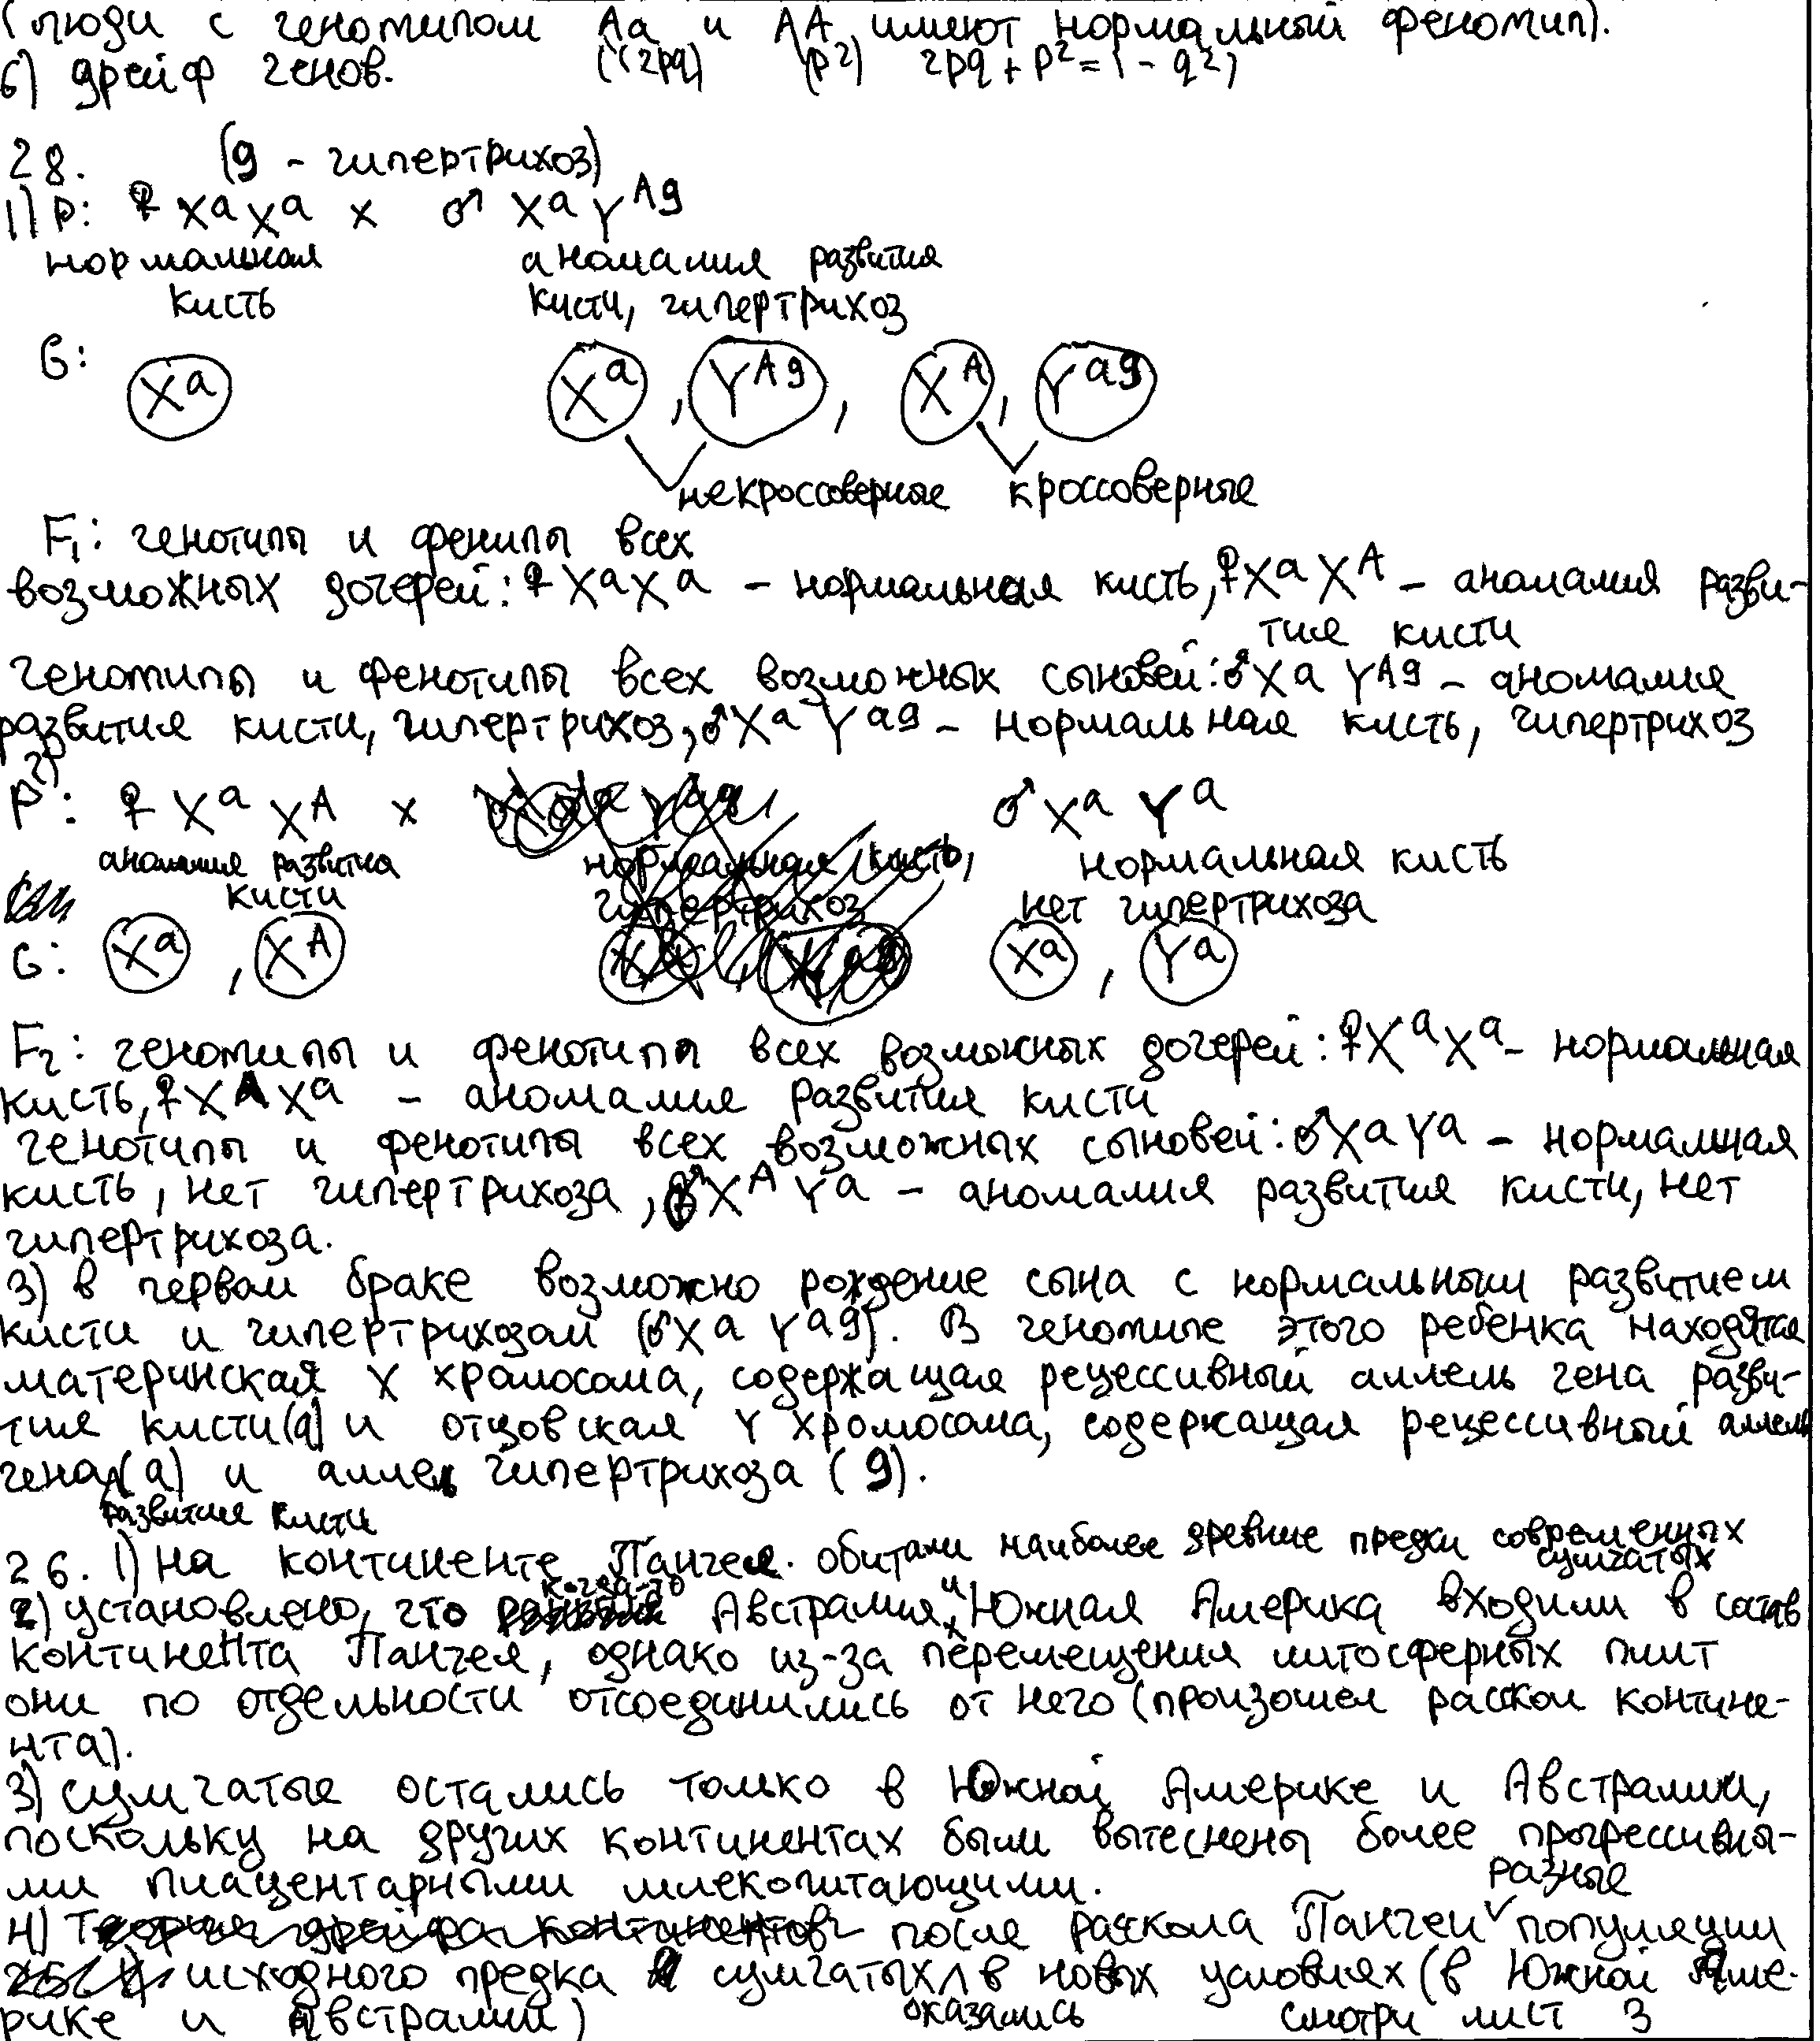 (люди с генотипом Aa и AA имеют нормальный фенотип).
6) дрейф генов. ((2pq) (p²) 2pq + p² = 1 - q²)
28. (g - гипертрихоз)
1) P: ♀ XᵃXᵃ x ♂ XᵃYᴬᵍ
нормальная аномалия развития
кисть кисти, гипертрихоз
G: Xᵃ Xᵃ, Yᴬᵍ, Xᴬ, Yᵃᵍ
некроссоверные кроссоверные
F₁: генотипы и фенипы всех
возможных дочерей: ♀ XᵃXᵃ - нормальная кисть, ♀XᵃXᴬ - аномалия разви-
тия кисти
генотипы и фенотипы всех возможных сыновей: ♂XᵃYᴬᵍ - аномалия
развития кисти, гипертрихоз, ♂XᵃYᵃᵍ - нормальная кисть, гипертрихоз
2)
P: ♀ XᵃXᴬ x ♂ XᵃYᵃ
аномалия развития нормальная кисть, нормальная кисть
кисти гипертрихоз нет гипертрихоза
G: Xᵃ, Xᴬ Xᵃ, Yᵃ
F₂: генотипы и фенотипы всех возможных дочерей: ♀XᵃXᵃ - нормальная
кисть, ♀XᴬXᵃ - аномалия развития кисти
генотипы и фенотипы всех возможных сыновей: ♂XᵃYᵃ - нормальная
кисть, нет гипертрихоза, ♂XᴬYᵃ - аномалия развития кисти, нет
гипертрихоза.
3) в первом браке возможно рождение сына с нормальным развитием
кисти и гипертрихозом (♂XᵃYᵃᵍ). В генотипе этого ребенка находятся
материнская X хромосома, содержащая рецессивный аллель гена разви-
тия кисти (a) и отцовская Y хромосома, содержащая рецессивный аллель
гена (a) и аллель гипертрихоза (g).
развития кисти
26. 1) на континенте Пангея обитали наиболее древние предки современных
сумчатых
2) установлено, что когда-то Австралия и Южная Америка входили в состав
континента Пангея, однако из-за перемещения литосферных плит
они по отдельности отсоединились от него (произошел раскол контине-
нта).
3) сумчатые остались только в Южной Америке и Австралии,
поскольку на других континентах были вытеснены более прогрессивны-
ми плацентарными млекопитающими.
разные
4) Теория дрейфа континентов после раскола Пангеи популяции
исходного предка сумчатых в новых условиях (в Южной Аме-
рике и Австралии) оказались смотри лист 3